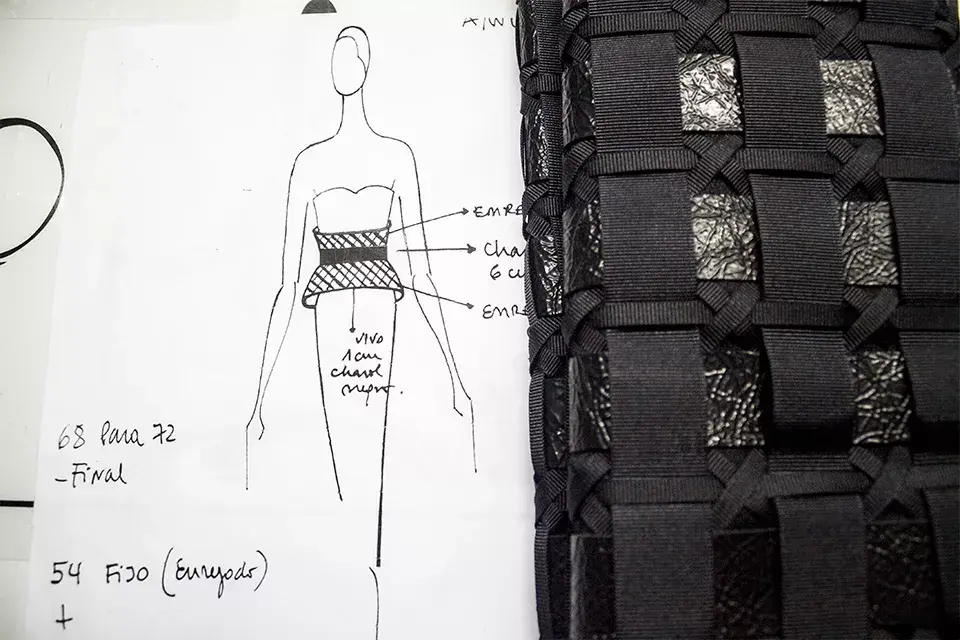 A/W
EMRE
Cha
6 cm
EMRE
vivo
1 cm
charol
negro.
68 Para 72
- Final
54 Fijo (Enrejado)
+